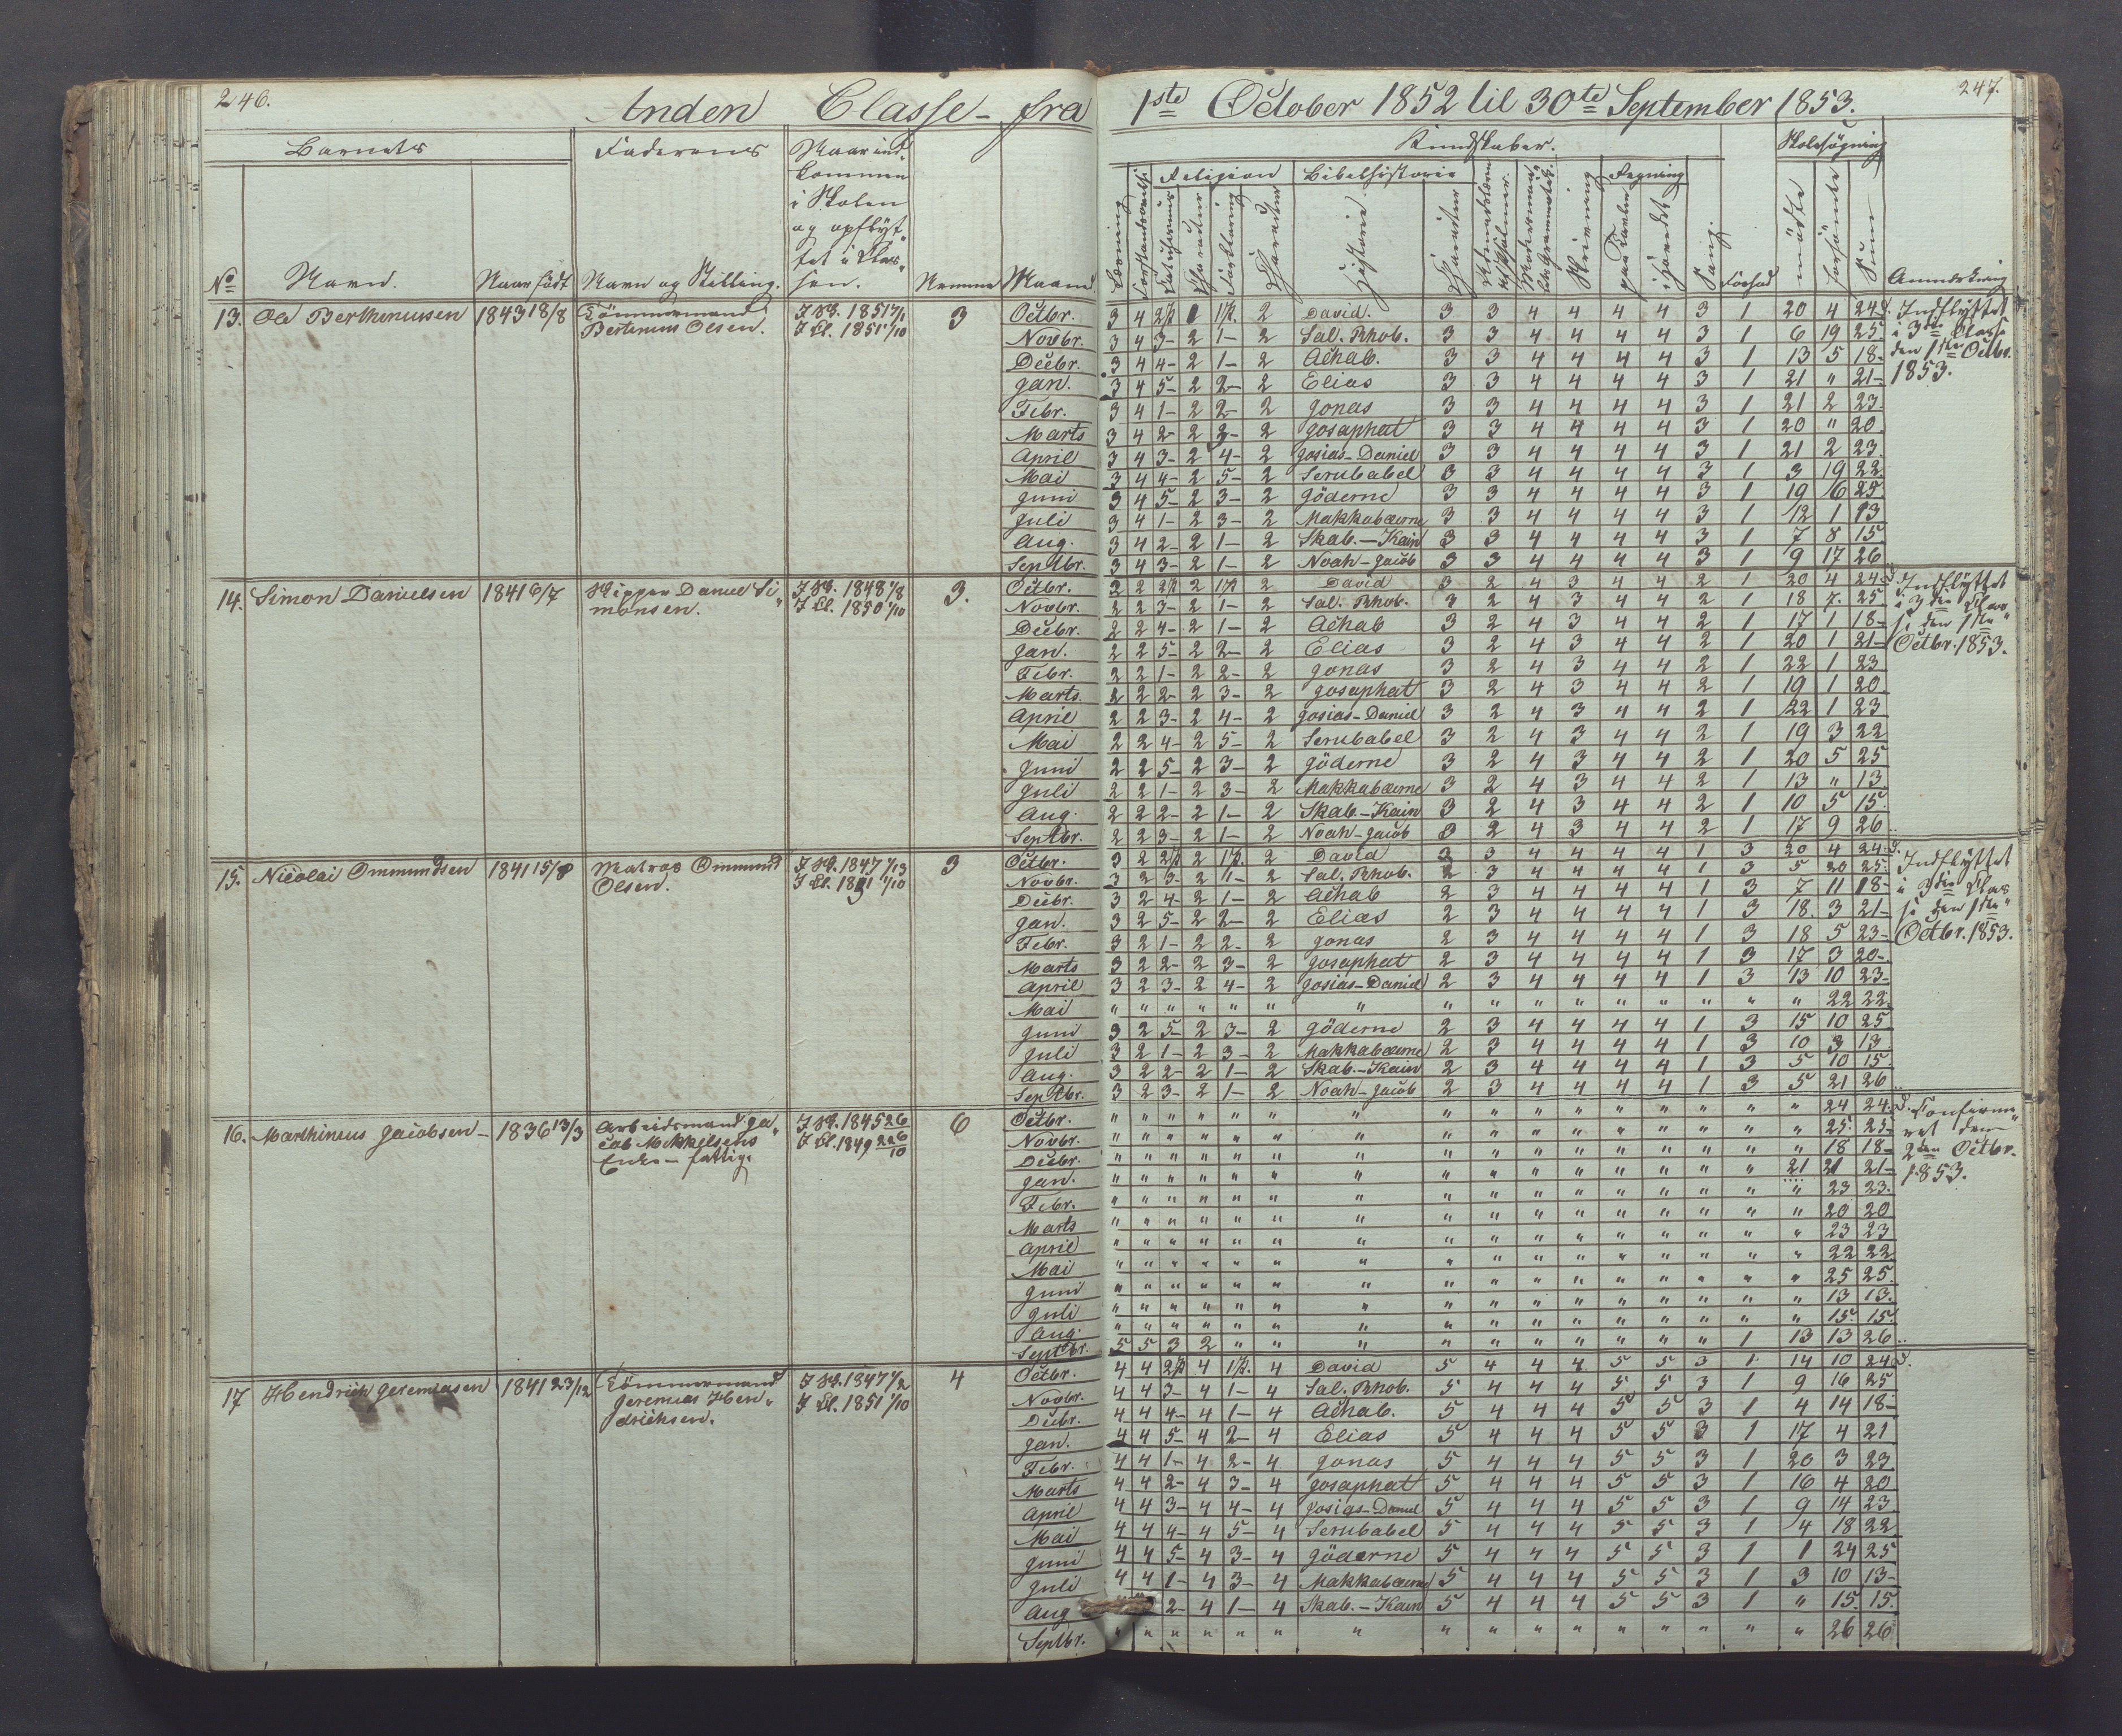 246.
247.
Anden Classe – fra 1ste October 1852 til 30te September 1853.
Barnets
Faderens
Naar ind-
kommen
i Skolen
og opflyt-
tet i Clas-
sen.
No
Navn.
Naar født
Navn og Stilling.
Nemme
Maaned
Kundskaber.
Religion
Bibelhistorie
Regning
Skolesøgning
Læsning
Forklaring
Charakter
Historie
Charakter
Skrivning
paa Tavlen
i Hovedet
Sang.
Forhold
mødte
forsømte
Sum
Anmærkning
13. Ole Berthinussen 1843 18/8 Tømmermand 3
Bertinius Olsen.
I Sk. 1851
I Cl. 1851 1/10
Octbr. 3 4 2 1 2 David. 3 3 4 4 4 4 3 1 20 4 24
Novbr. 3 4 3- 2 1- 2 Sal. Rhob. 3 3 4 4 4 4 3 1 6 19 25
Decbr. 3 4 4- 2 1- 2 Achab. 3 3 4 4 4 4 3 1 13 5 18-
Jan. 3 4 5- 2 2- 2 Elias 3 3 4 4 4 4 3 1 21 " 21-
Febr. 3 4 1- 2 2- 2 Jonas 3 3 4 4 4 4 3 1 21 2 23
Marts 3 4 2- 2 3- 2 Josaphat 3 3 4 4 4 4 3 1 20 " 20
April 3 4 3- 2 4- 2 Josias-Daniel 3 3 4 4 4 4 3 1 21 2 23
Mai 3 4 4- 2 5- 2 Serubabel 3 3 4 4 4 4 3 1 3 19 22
Juni 3 4 5- 2 3- 2 Jöderne 3 3 4 4 4 4 3 1 19 6 25
Juli 3 4 1- 2 3- 2 Makkabæerne 3 3 4 4 4 4 3 1 12 1 13
Aug. 3 4 2- 2 1- 2 Skab.-Kain 3 3 4 4 4 4 3 1 7 8 15
Septbr. 3 4 3- 2 1- 2 Noah-Jacob 3 3 4 4 4 4 3 1 9 17 26
Indflyttet
i 3die Classe
den 1ste Octbr.
1853.
14. Simon Danielsen 1841 6/7 Skipper Daniel Si- 3.
monsen.
I Sk. 1848 1/8
I Cl. 1850 1/10
Octbr. 2 2 2 2 1 2 David 3 2 4 3 4 4 2 1 20 4 24
Novbr. 2 2 3- 2 1- 2 Sal. Rhob. 3 2 4 3 4 4 2 1 18 7 25
Decbr. 2 2 4- 2 1- 2 Achab 3 2 4 3 4 4 2 1 17 1 18-
Jan. 2 2 5- 2 2- 2 Elias 3 2 4 3 4 4 2 1 20 1 21-
Febr. 2 2 1- 2 2- 2 Jonas 3 2 4 3 4 4 2 1 22 1 23
Marts. 2 2 2- 2 3- 2 Josaphat 3 2 4 3 4 4 2 1 19 1 20
April 2 2 3- 2 4- 2 Josias-Daniel 3 2 4 3 4 4 2 1 22 1 23
Mai 2 2 4- 2 5- 2 Serubabel 3 2 4 3 4 4 2 1 19 3 22
Juni 2 2 5- 2 3- 2 Jöderne 3 2 4 3 4 4 2 1 20 5 25
Juli 2 2 1- 2 3- 2 Makkabæerne 3 2 4 3 4 4 2 1 13 " 13
Aug. 2 2 2- 2 1- 2 Skab.-Kain 3 2 4 3 4 4 2 1 10 5 15
Septbr. 2 2 3- 2 1- 2 Noah-Jacob 3 2 4 3 4 4 2 1 17 9 26
Indflyttet
i 3die Clas-
se den 1ste
Octbr. 1853.
15. Nicolai Ommundsen 1841 15/8 Matros Ommund 3
Olsen.
I Sk. 1847
I Cl. 1851 1/10
Octbr. 3 2 2 2 1 2 David 3 3 4 4 4 4 1 3 20 4 24
Novbr. 3 2 3- 2 1- 2 Sal. Rhob. 2 3 4 4 4 4 1 3 5 20 25
Decbr. 3 2 4- 2 1- 2 Achab 2 3 4 4 4 4 1 3 7 11 18-
Jan. 3 2 5- 2 2- 2 Elias 2 3 4 4 4 4 1 3 18 3 21-
Febr. 3 2 1- 2 2- 2 Jonas 2 3 4 4 4 4 1 3 18 5 23-
Marts 3 2 2- 2 3- 2 Josaphat 2 3 4 4 4 4 1 3 17 3 20-
April 3 2 3- 2 4- 2 Josias-Daniel 2 3 4 4 4 4 1 3 13 10 23-
Mai " " " " " " " " " " " " " " " " 22 22
Juni 3 2 5- 2 3- 2 Jöderne 2 3 4 4 4 4 1 3 15 10 25
Juli 3 2 1- 2 3- 2 Makkabæerne 2 3 4 4 4 4 1 3 10 3 13
Aug. 3 2 2- 2 1- 2 Skab.-Kain 2 3 4 4 4 4 1 3 5 10 15
Septbr. 3 2 3- 2 1- 2 Noah-Jacob 2 3 4 4 4 4 1 3 5 21 26
Indflyttet
i 3die Clas-
se den 1ste
Octbr. 1853.
16. Marthinius Jacobsen – 1836 13/3 Arbeidsmand Ja- 6
cob Mikkelsens
Enke – fattig.
I Sk. 1845
I Cl. 1849
Octbr. " " " " " " " " " " " " " " " " 24 24
Novbr. " " " " " " " " " " " " " " " " 25 25
Decbr. " " " " " " " " " " " " " " " " 18 18-
Jan. " " " " " " " " " " " " " " " 21 21 21-
Febr. " " " " " " " " " " " " " " " " 23 23
Marts " " " " " " " " " " " " " " " " 20 20
April " " " " " " " " " " " " " " " " 23 23
Mai " " " " " " " " " " " " " " " " 22 22
Juni " " " " " " " " " " " " " " " " 25 25
Juli " " " " " " " " " " " " " " " " 13 13
Aug. " " " " " " " " " " " " " " " " 15 15
Septbr. 5 5 3 2 " " " " " " " " " " 1 13 13 26
Confirme-
ret den
2den Octbr.
1853.
17 Hendrich Jeremiasen 1841 23/12 Tömmermand 4
Jeremias Hen-
drichsen.
I Sk. 1847 1/2
I Cl. 1851 1/10
Octbr. 4 4 2 4 1 4 David 5 4 4 4 5 5 3 1 14 10 24
Novbr. 4 4 3- 4 1- 4 Sal. Rhob. 5 4 4 4 5 5 3 1 9 16 25
Decbr. 4 4 4- 4 1- 4 Achab. 5 4 4 4 5 5 3 1 4 14 18-
Jan. 4 4 5- 4 2- 4 Elias 5 4 4 4 5 5 3 1 17 4 21
Febr. 4 4 1- 4 2- 4 Jonas 5 4 4 4 5 5 3 1 20 3 23
Marts 4 4 2- 4 3- 4 Josaphat 5 4 4 4 5 5 3 1 16 4 20
April 4 4 3- 4 4- 4 Josias-Daniel 5 4 4 4 5 5 3 1 9 14 23
Mai 4 4 4- 4 5- 4 Serubabel 5 4 4 4 5 5 3 1 4 18 22
Juni 4 4 5- 4 3- 4 Jöderne 5 4 4 4 5 5 3 1 1 24 25
Juli 4 4 1- 4 3- 4 Makkabæerne 5 4 4 4 5 5 3 1 3 10 13-
Aug 2- 4 1- 4 Skab.-Kain 5 4 4 4 5 5 3 1 " 15 15
Septbr. " " " " " " " " " " " " " " " " 26 26